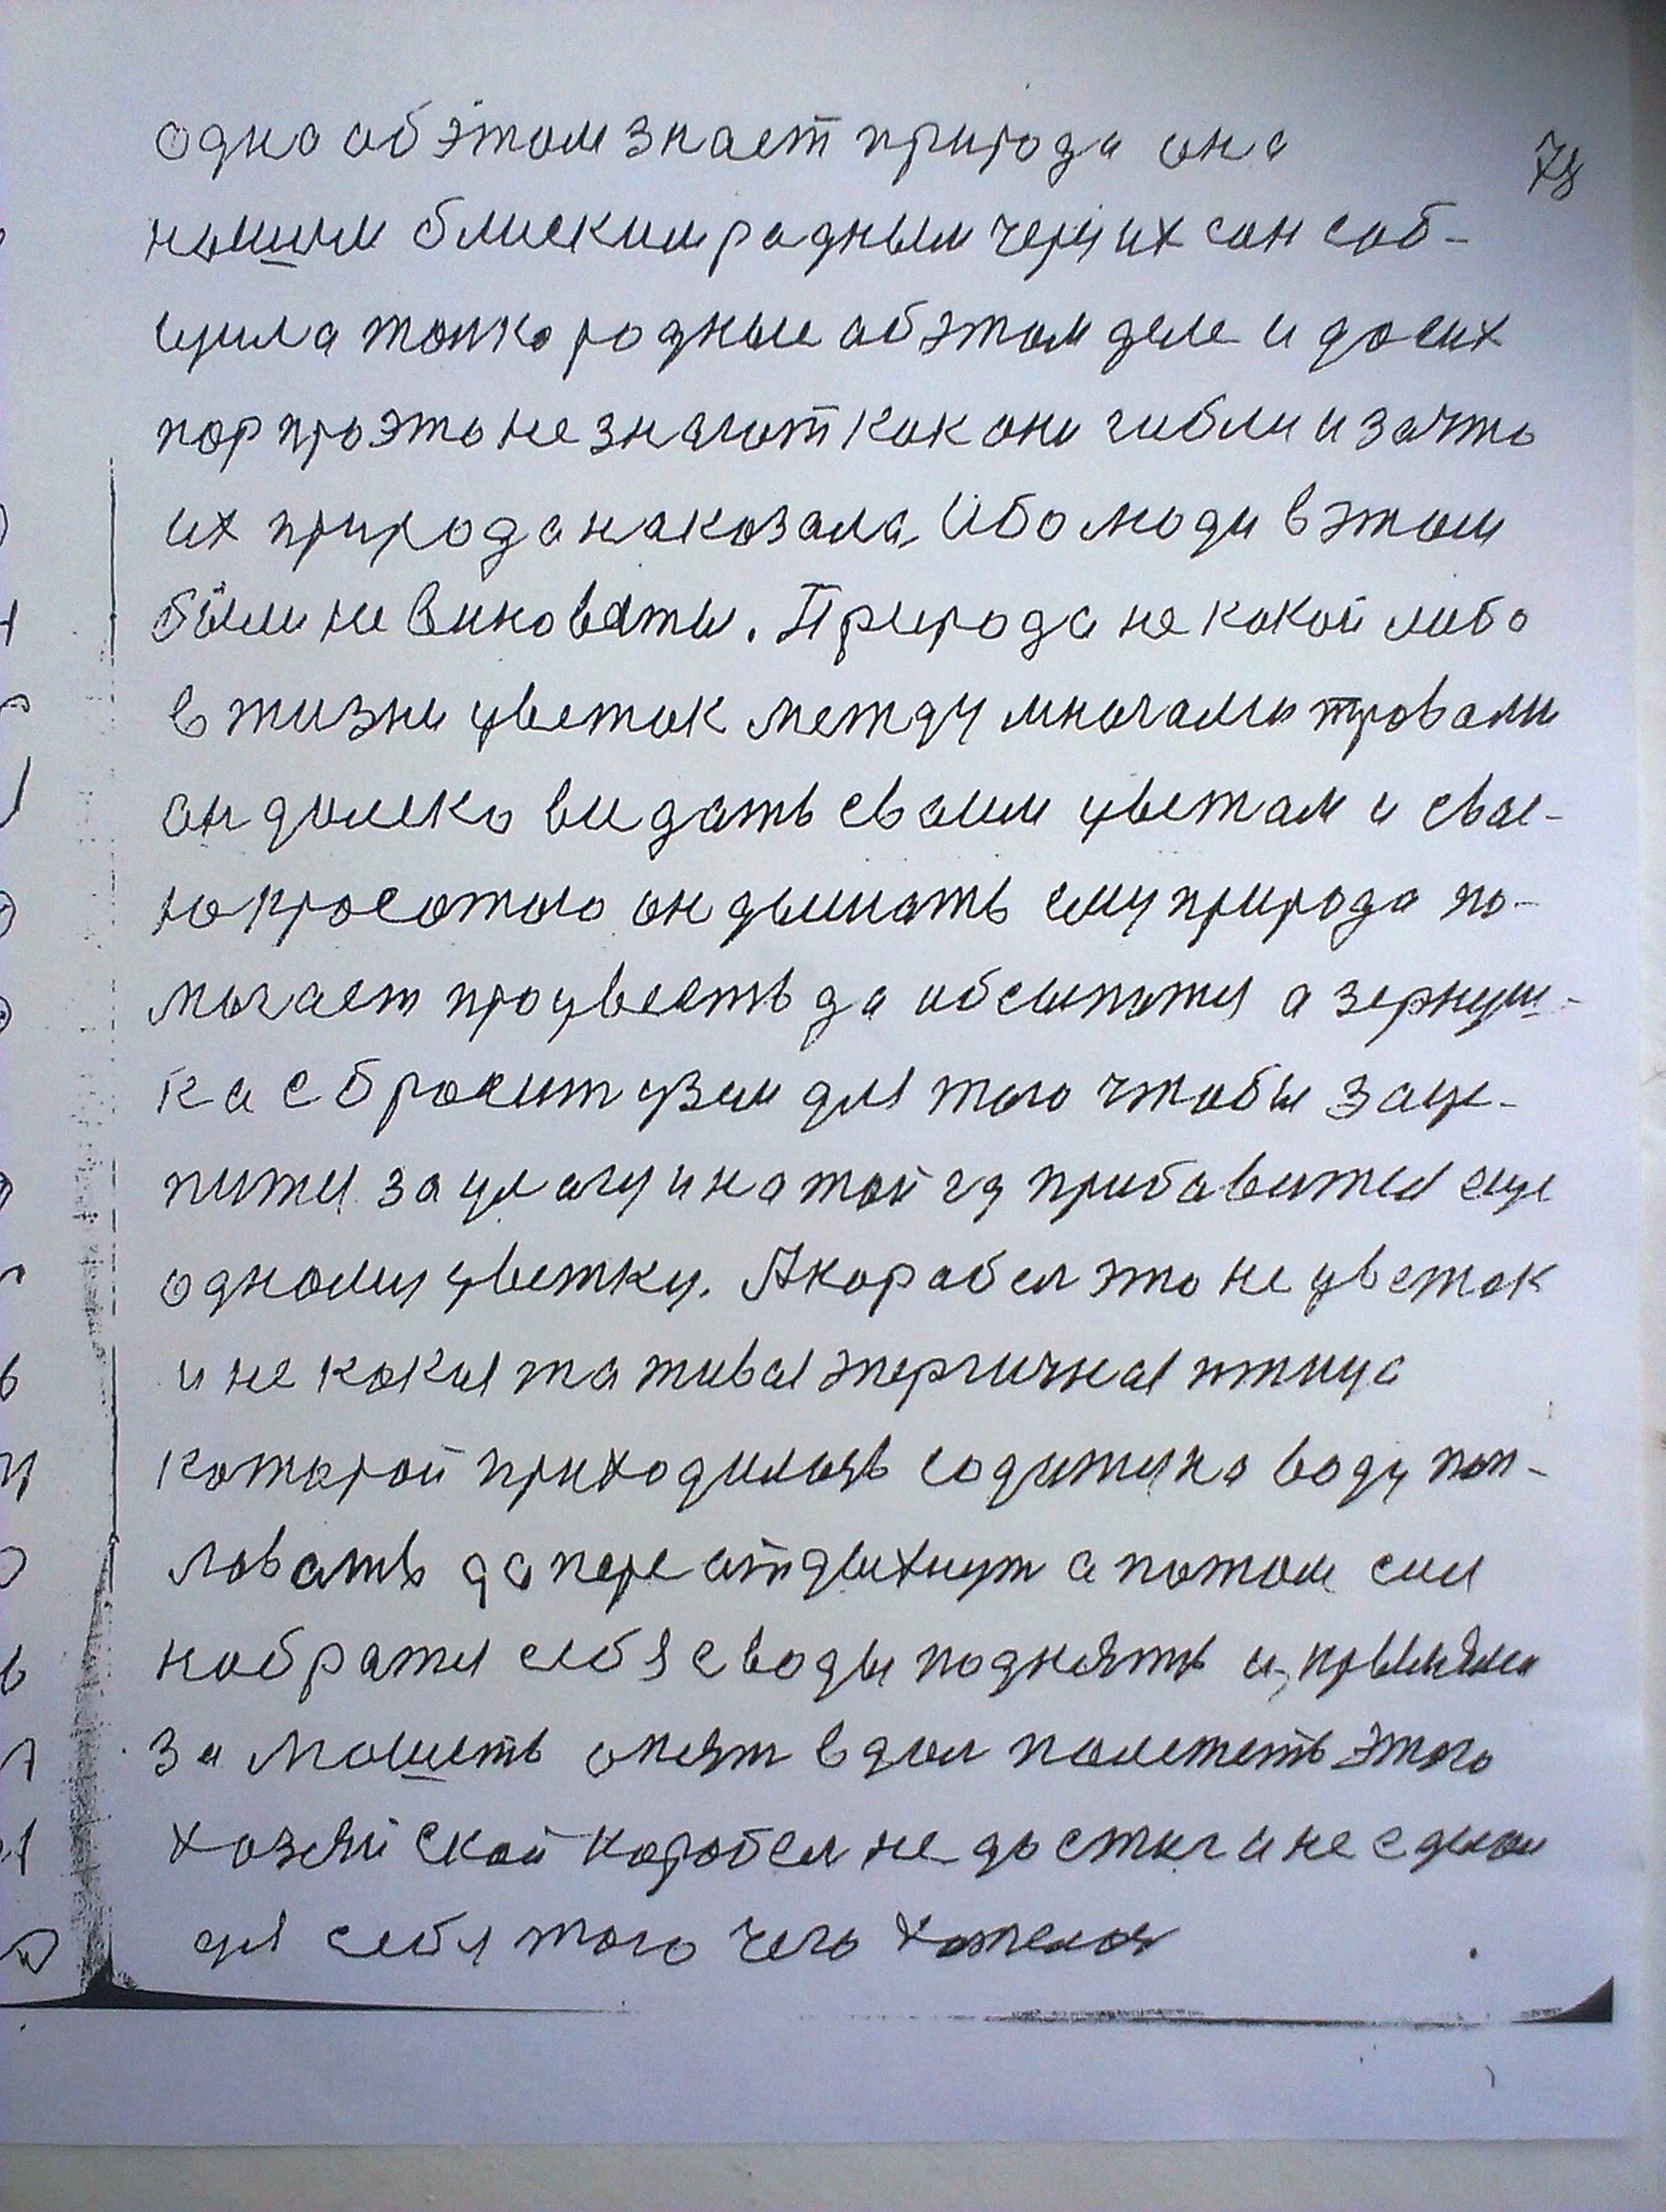 одна об этом знает природа она
78
нашим блиским радным через их сон соб-
щила толко родные об этом деле и до сих
пор про это не знают как они гибли и за что
их природа наказала. Ибо люди в этом
были не виноваты. Природа не какой либо
в жизни цветок между многами травами
он далеко видать своим цветам и свае-
ю красотою он дышать ему природа по-
могает процвесть да обсыпится а зернуш-
ка сбросит цвзем для того чтобы заце-
пится за цлагу и на той гд прибавится еще
одному цветку. А корабел это не цветок
и не какия та живая энергичная птица
которой приходилось садится на воду поп-
ловать да переатдыхнут а потом сил
набратя себя с воды поднять и
за мошеть опять в дом полететь этого
хозяйской корабел не достиг и не сделал
для себя того чего хотелось